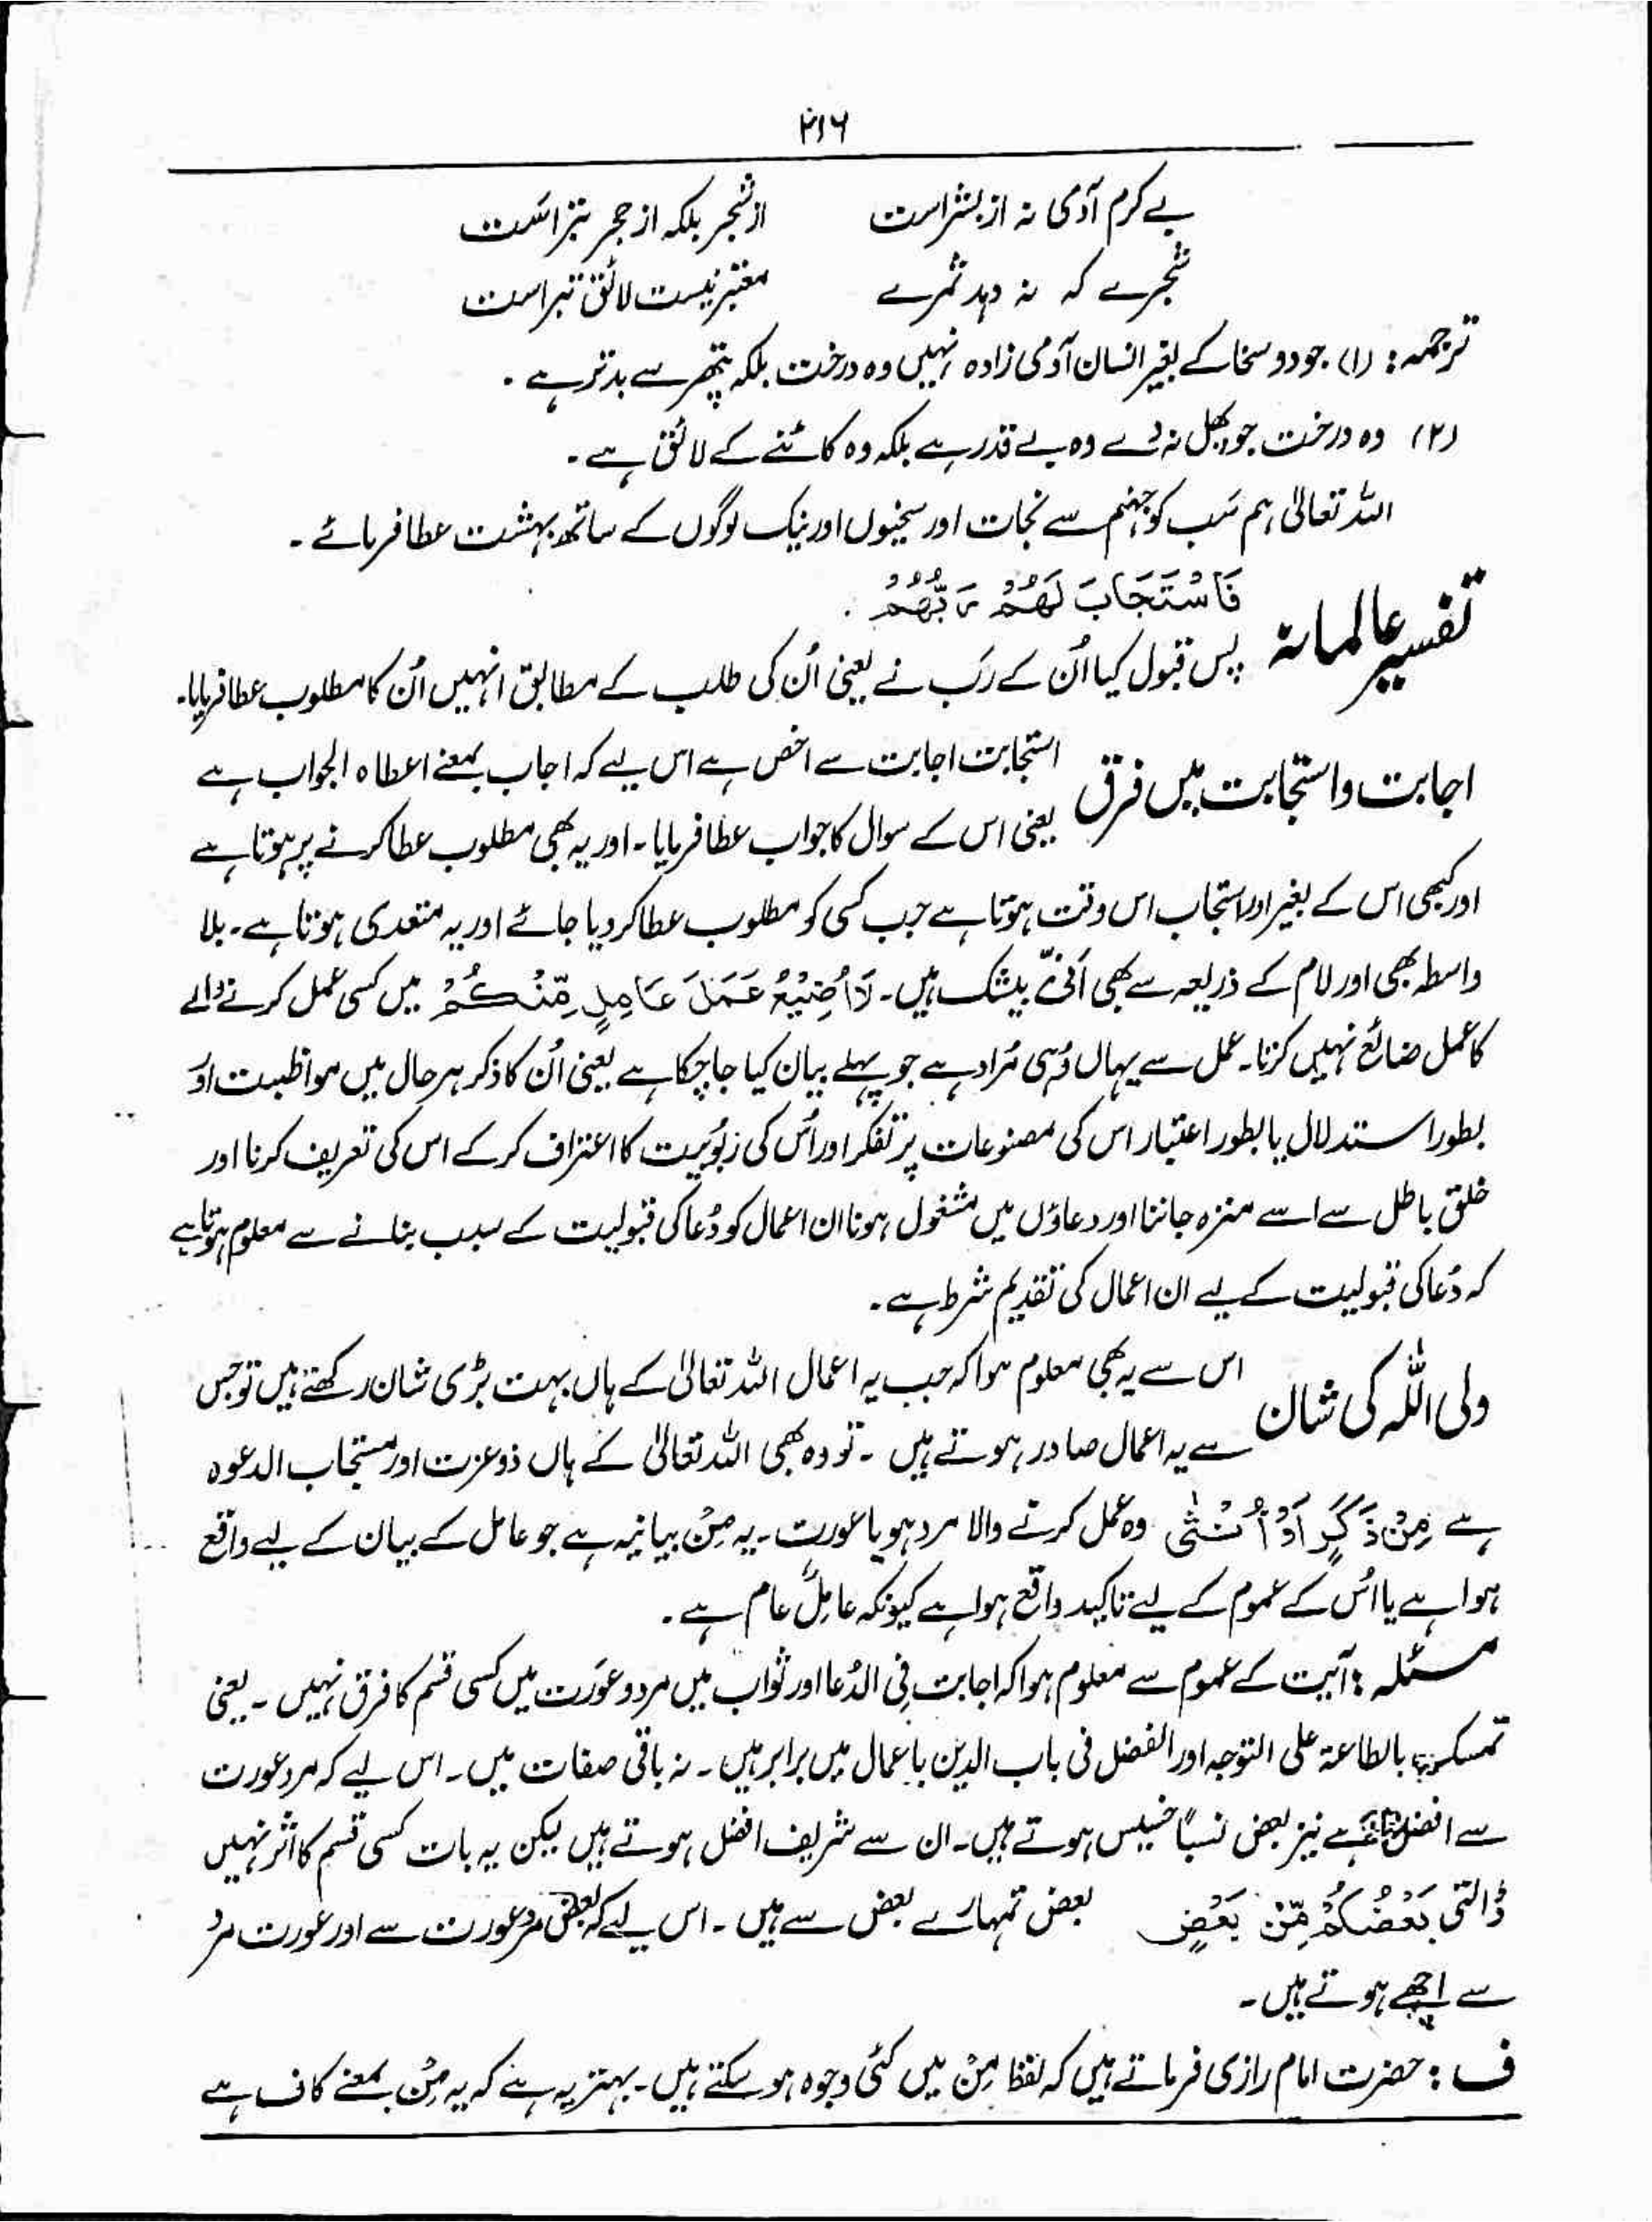 ۲۱۶
بے کرم آدمی نہ از بشر است از شجر بلکہ از حجر بتر است
شجرے کہ نہ دہد ثمرے معتبر نیست لائق تبر است
ترجمہ: (۱) جود و سخا کے بغیر انسان آدمی زادہ نہیں وہ درخت بلکہ پتھر سے بدتر ہے۔
(۲) وہ درخت جو پھل نہ دے وہ بے قدر ہے بلکہ وہ کاٹنے کے لائق ہے۔
اللہ تعالیٰ ہم سَب کو جہنم سے نجات اور سخیوں اور نیک لوگوں کے ساتھ بہشت عطا فرمائے۔
تفسیر عالمانہ فَاسْتَجَابَ لَهُمْ رَبُّهُمْ .
پس قبول کیا اُن کے رَب نے یعنی اُن کی طلب کے مطابق انہیں اُن کا مطلوب عطا فرمایا۔
اجابت و استجابت میں فرق استجابت اجابت سے اخص ہے اس لیے کہ اجاب بمعنے اعطاہ الجواب ہے
یعنی اس کے سوال کا جواب عطا فرمایا۔ اور یہ بھی مطلوب عطا کرنے پر ہوتا ہے
اور کبھی اس کے بغیر اور استجاب اس وقت ہوتا ہے جب کسی کو مطلوب عطا کر دیا جائے اور یہ متعدی ہوتا ہے۔ بلا
واسطہ بھی اور لام کے ذریعہ سے بھی اَنِّیْ بیشک میں۔ لَا اُضِیْعُ عَمَلَ عَامِلٍ مِّنْکُمْ میں کسی عمل کرنے والے
کا عمل ضائع نہیں کرتا۔ عمل سے یہاں وُہی مُراد ہے جو پہلے بیان کیا جا چکا ہے یعنی اُن کا ذکر ہر حال میں مواظبت اور
بطور استدلال یا بطور اعتبار اس کی مصنوعات پر تفکر اور اُس کی ربُوبیت کا اعتراف کر کے اس کی تعریف کرنا اور
خلق باطل سے اسے منزہ جاننا اور دعاؤں میں مشغول ہونا ان اعمال کو دُعا کی قبولیت کے سبب بنانے سے معلوم ہوتا ہے
کہ دُعا کی قبولیت کے لیے ان اعمال کی تقدیم شرط ہے۔
ولی اللہ کی شان اس سے یہ بھی معلوم ہوا کہ جب یہ اعمال اللہ تعالیٰ کے ہاں بہت بڑی شان رکھتے ہیں تو جس
سے یہ اعمال صادر ہوتے ہیں۔ تو وہ بھی اللہ تعالیٰ کے ہاں ذو عزت اور مستجاب الدعوہ
ہے مِنْ ذَکَرٍ اَوْ اُنْثٰی وہ عمل کرنے والا مرد ہو یا عورت۔ یہ مِنْ بیانیہ ہے جو عامل کے بیان کے لیے واقع
ہوا ہے یا اُس کے عموم کے لیے تاکید واقع ہوا ہے کیونکہ عامِلٌ عام ہے۔
مسئلہ: آیت کے عموم سے معلوم ہوا کہ اجابت فِی الدُعا اور ثواب میں مرد و عورَت میں کسی قسم کا فرق نہیں۔ یعنی
تمسک بالطاعۃ علی التوجہ اور الفضل فی باب الدین باعمال میں برابر ہیں۔ نہ باقی صفات میں۔ اس لیے کہ مرد عورت
سے افضل ہے نیز بعض نسباً خسیس ہوتے ہیں۔ ان سے شریف افضل ہوتے ہیں لیکن یہ بات کسی قسم کا اثر نہیں
ڈالتی بَعْضُکُمْ مِّنْ بَعْضٍ بعض تمہارے بعض سے ہیں۔ اس لیے کہ بعض مرد عورت سے اور عورت مرد
سے اچھے ہوتے ہیں۔
ف: حضرت امام رازی فرماتے ہیں کہ لفظ مِنْ میں کئی وجوہ ہو سکتے ہیں۔ بہتر یہ ہے کہ یہ مِنْ بمعنے کاف ہے